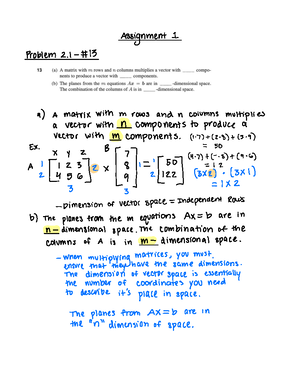 Assignment 1
Problem 2.1 - #13
13 (a) A matrix with m rows and n columns multiplies a vector with _____ compo-
nents to produce a vector with _____ components.
(b) The planes from the m equations Ax = b are in _____-dimensional space.
The combination of the columns of A is in _____-dimensional space.
a) A matrix with m rows and n columns multiplies
a vector with n components to produce a
vector with m components.
(1·7)+(2·8)+(3·9)
= 50
Ex.
x y z B
A 1 [1 2 3] 2 x [7 8 9] 1 = 1 [50]
2 [4 5 6] 2 [122]
3 3
= 12
(3x2) · (3x1)
= 1x2
- Dimension of vector space = Independent Rows
b) The planes from the m equations Ax=b are in
n-dimensional space. The combination of the
columns of A is in m-dimensional space.
- When multiplying matrices, you must
ensure that they have the same dimensions.
The dimension of vector space is essentially
the number of coordinates you need
to describe it's place in space.
The planes from Ax=b are in
the "n" dimension of space.